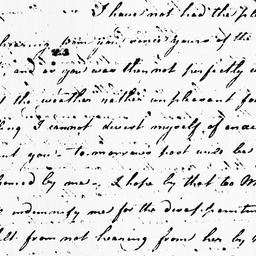 I have not had the ple
hearing from you since yours of the
, and as you was then not perfectly w
t the weather rather unpleasant for
ling I cannot divest myself of an ac
out you - to-morrow's post will be
by me - I hope by that Co M
indemnify me for the disappointm
felt from not hearing from her by